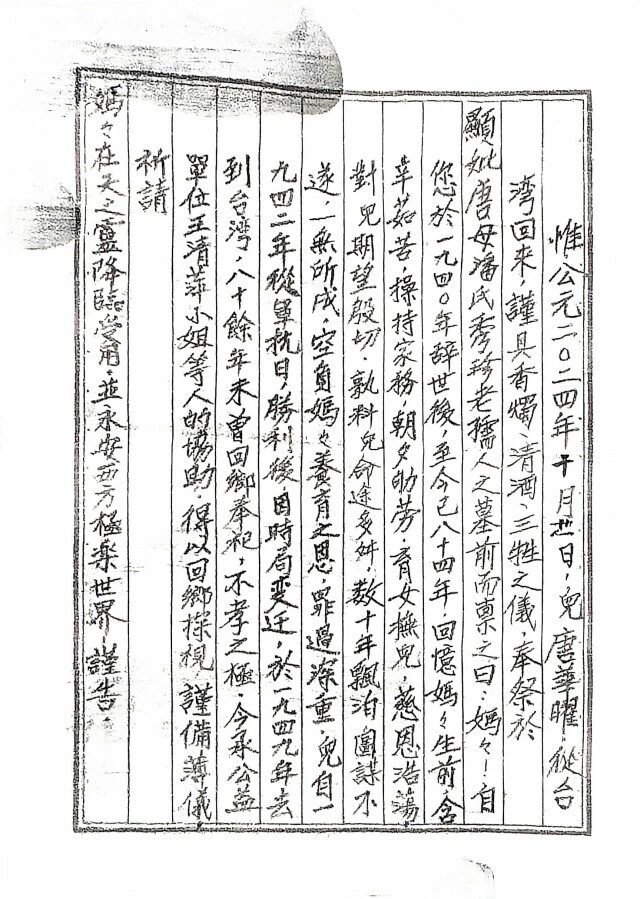 惟，公元二〇二四年十月卅日，兒唐華曜，從台
湾回來，謹具香燭、清酒、三牲之儀，奉祭於
顯妣唐母潘氏秀珍老孺人之墓前而禀之曰：媽々！自
您於一九四〇年辭世後，至今已八十四年，回憶媽々生前，含
莘茹苦，操持家務，朝夕劬劳，育女撫兒，慈恩浩蕩，
對兒期望殷切，孰料兒命途多舛，数十年飄泊，圖謀不
遂，一無所成，空負媽々養育之恩，罪過深重，兒自一
九四二年從軍抗日，勝利後，因時局变迁，於一九四九年去
到台湾，八十餘年未曾回鄉奉祀，不孝之極，今承公益
單位王清萍小姐等人的協助，得以回鄉探視，謹備薄儀，
祈請
媽々在天之靈降臨受用，並永安西方極楽世界，謹告。